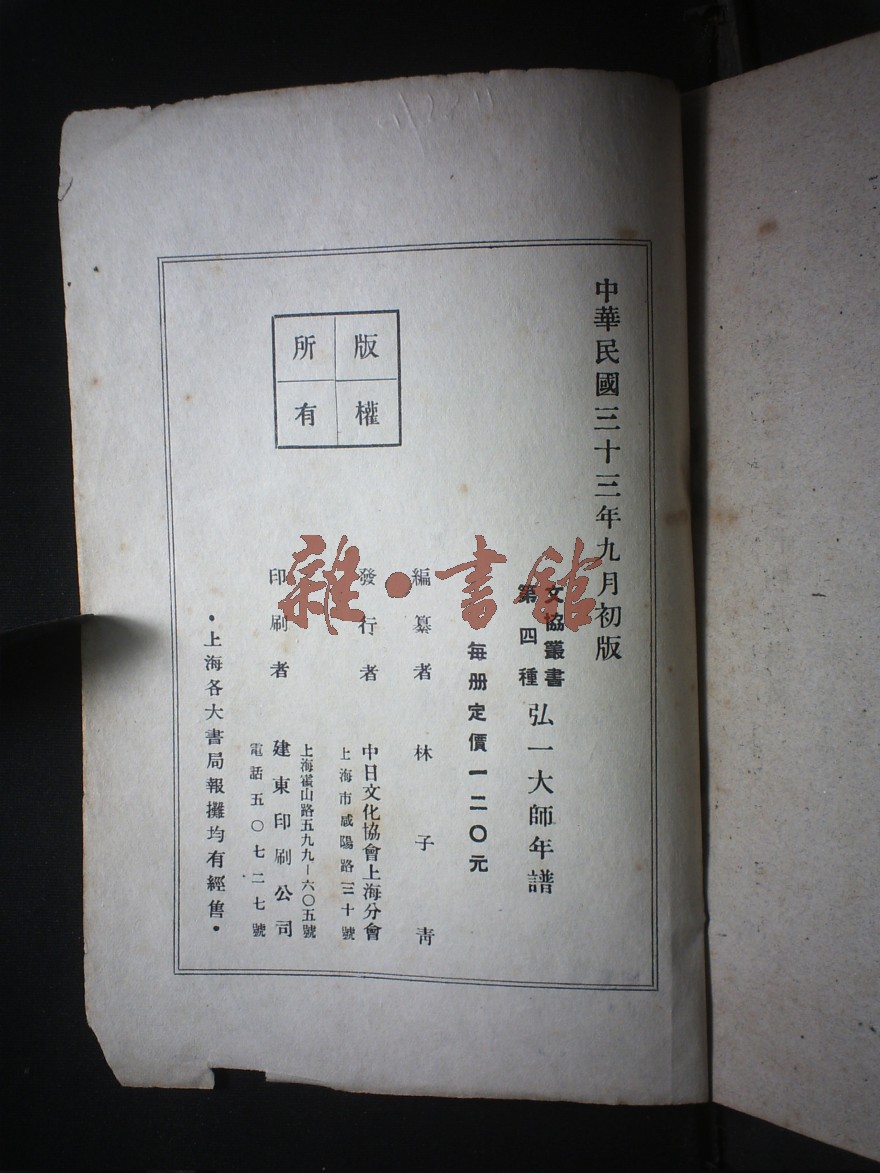 中華民國三十三年九月初版
文協叢書
第四種
弘一大師年譜
每册定價一二〇元
編纂者 林子靑
發行者 中日文化協會上海分會
上海市咸陽路三二十號
印刷者 建東印刷公司
上海霍山路五九九—六〇五號
電話五〇七二七號
•上海各大書局報攤均有經售•
版權
所有
雜•書館